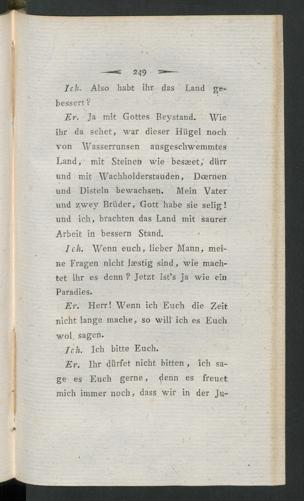 249
Ich. Also habt ihr das Land ge-
bessert?
Er. Ja mit Gottes Beystand. Wie
ihr da sehet, war dieser Hügel noch
von Wasserrunsen ausgeschwemmtes
Land, mit Steinen wie besæet, dürr
und mit Wachholderstauden, Dœrnen
und Disteln bewachsen. Mein Vater
und zwey Brüder, Gott habe sie selig!
und ich, brachten das Land mit saurer
Arbeit in bessern Stand.
Ich. Wenn euch, lieber Mann, mei-
ne Fragen nicht læstig sind, wie mach-
tet ihr es denn? Jetzt ist's ja wie ein
Paradies.
Er. Herr! Wenn ich Euch die Zeit
nicht lange mache, so will ich es Euch
wol sagen.
Ich. Ich bitte Euch.
Er. Ihr dürfet nicht bitten, ich sa-
ge es Euch gerne, denn es freuet
mich immer noch, dass wir in der Ju-